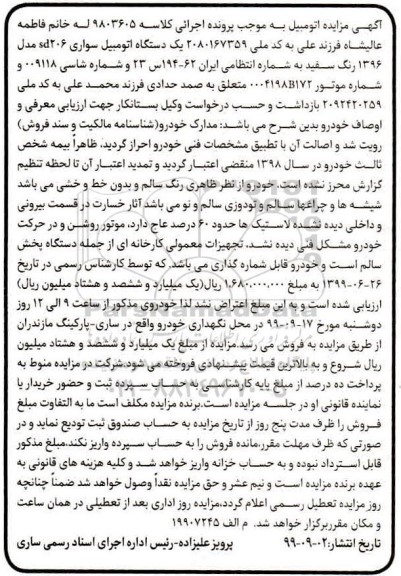 آگهی مزایده اتومبیل به موجب پرونده اجرائی کلاسه ۹۸۰۳۶۰۵ له خانم فاطمه
عالیشاه فرزند علی به کد ملی ۲۰۸۰۱۶۷۳۵۹ یک دستگاه اتومبیل سواری sd۲۰۶ مدل
۱۳۹۶ رنگ سفید به شماره انتظامی ایران ۶۲-۱۹۴س ۲۳ و شماره شاسی ۰۰۹۱۱۸ و
شماره موتور ۰۰۰۴۱۹۸B۱۷۲ متعلق به صمد حدادی فرزند محمد علی به کد ملی
۲۰۹۲۴۲۰۲۵۹ بازداشت و حسب درخواست وکیل بستانکار جهت ارزیابی معرفی و
اوصاف خودرو بدین شرح می باشد: مدارک خودرو(شناسنامه مالکیت و سند فروش)
رویت شد و اصالت آن با تطبیق مشخصات فنی خودرو احراز گردید، ظاهراً بیمه شخص
ثالث خودرو در سال ۱۳۹۸ منقضی اعتبار گردید و تمدید اعتبار آن تا لحظه تنظیم
گزارش محرز نشده است، خودرو از نظر ظاهری رنگ سالم و بدون خط و خشی می باشد
شیشه ها و چراغها سالم و تودوزی سالم و نو می باشد آثار خسارت در قسمت بیرونی
و داخلی دیده نشده لاستیک ها حدود ۶۰ درصد عاج دارد، موتور روشن و در حرکت
خودرو مشکل فنی دیده نشد، تجهیزات معمولی کارخانه ای از جمله دستگاه پخش
سالم است و خودرو قابل شماره گذاری می باشد. که توسط کارشناس رسمی در تاریخ
۲۶-۰۶-۱۳۹۹ به مبلغ ۱,۶۸۰,۰۰۰,۰۰۰ ریال(یک میلیارد و ششصد و هشتاد میلیون ریال)
ارزیابی شده است و به این مبلغ اعتراض نشد لذا خودروی مذکور از ساعت ۹ الی ۱۲ روز
دوشنبه مورخ ۱۷-۰۹-۹۹ در محل نگهداری خودرو واقع در ساری-پارکینگ مازندران
از طریق مزایده به فروش می رسد. مزایده از مبلغ یک میلیارد و ششصد و هشتاد میلیون
ریال شروع و به بالاترین قیمت پیشنهادی فروخته می شود.شرکت در مزایده منوط به
پرداخت ده درصد از مبلغ پایه کارشناسی به حساب سپرده ثبت و حضور خریدار یا
نماینده قانونی او در جلسه مزایده است.برنده مزایده مکلف است ما به التفاوت مبلغ
فروش را ظرف مدت پنج روز از تاریخ مزایده به حساب صندوق ثبت تودیع نماید و در
صورتی که ظرف مهلت مقرر،مانده فروش را به حساب سپرده واریز نکند،مبلغ مذکور
قابل استرداد نبوده و به حساب خزانه واریز خواهد شد و کلیه هزینه های قانونی به
عهده برنده مزایده است و نیم عشر و حق مزایده نقداً وصول خواهد شد ضمناً چنانچه
روز مزایده تعطیل رسمی اعلام گردد،مزایده روز اداری بعد از تعطیلی در همان ساعت
و مکان مقرربرگزار خواهد شد. م الف ۱۹۹۰۷۲۴۵
تاریخ انتشار: ۰۲-۰۹-۹۹ پرویز علیزاده-رئیس اداره اجرای اسناد رسمی ساری